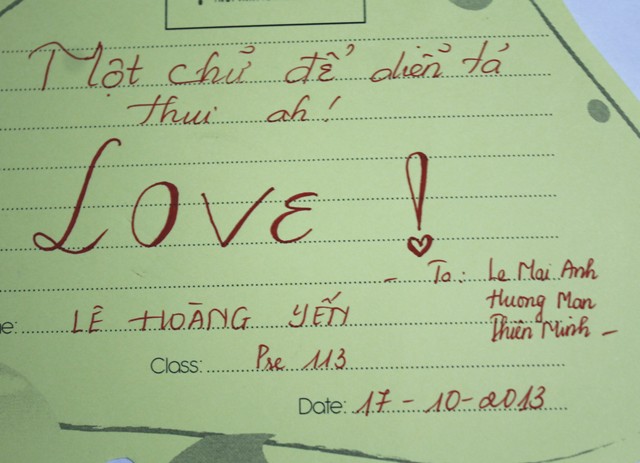 Một chử để diển tả
thui ah!
LOVE !
- To: Le Mai Anh
Huong Man
Thiên Minh -
LÊ HOÀNG YẾN
Class: Pre 113
Date: 17 - 10 - 2013